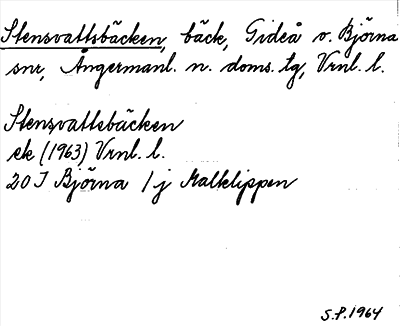 Stensvattsbäcken, bäck, Gideå o. Björna
snr, Ångermanl. n. doms. tg, Vrnl. l.
Stensvattsbäcken
ek (1963) Vrnl. l.
20 I Björna 1 j Kalklippen
S.P. 1964